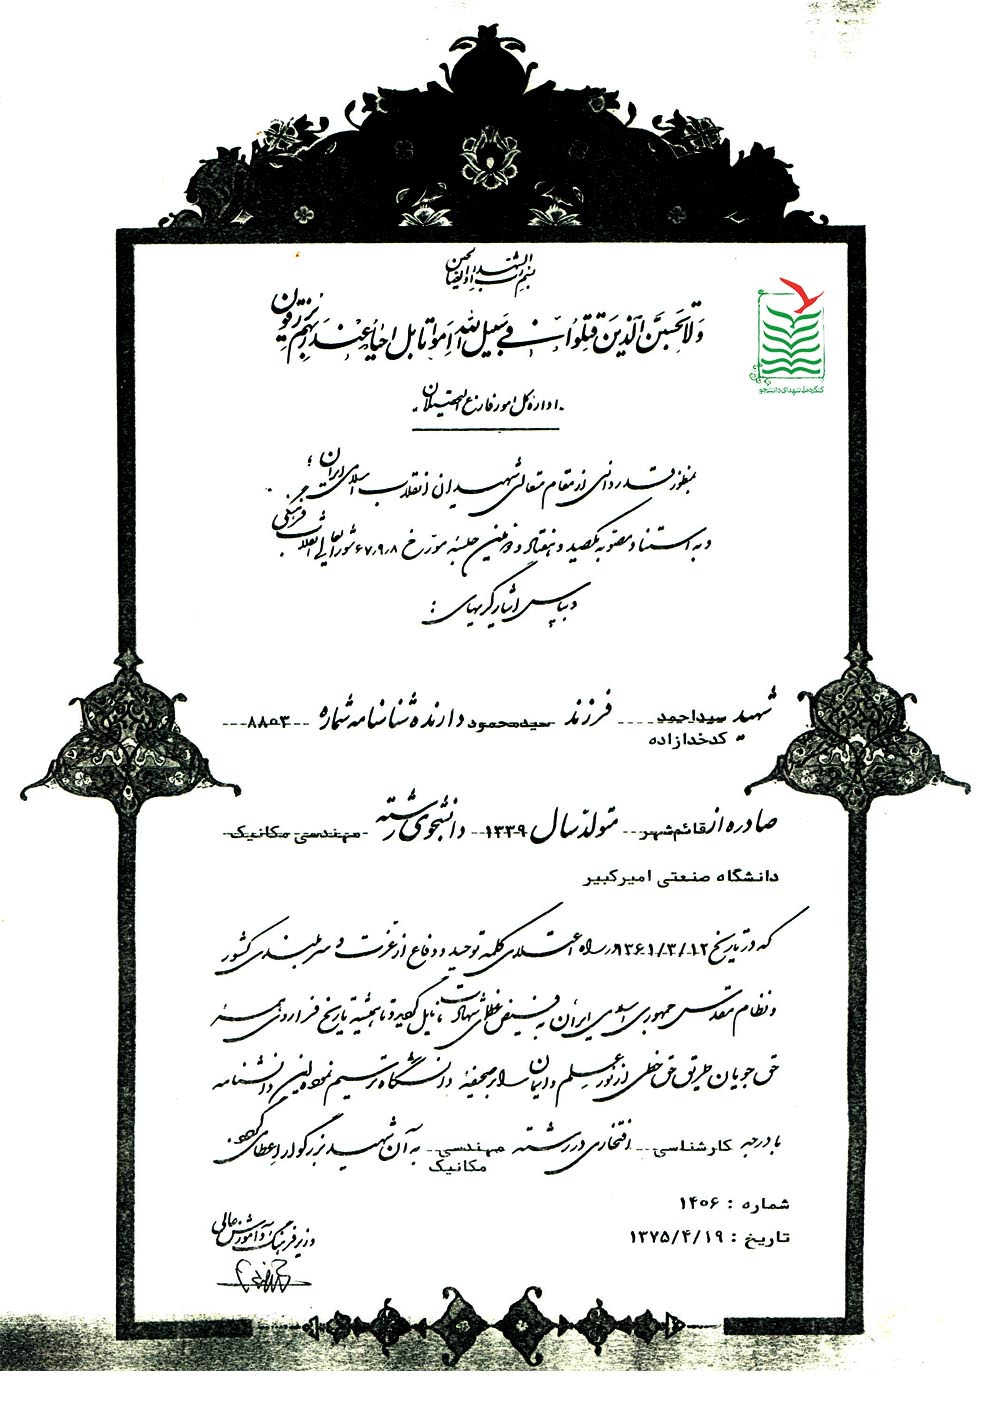 بسم رب الشهداء و الصدیقین
ولا تحسبن الذین قتلوا فی سبیل الله امواتا بل احیاء عند ربهم یرزقون
کنگره ملی شهدای دانشجو
اداره کل امور فارغ التحصیلان
بمنظور قدردانی از مقام متعالی شهیدان انقلاب اسلامی ایران؛
و به استناد مصوبه یکصد و هفتاد و دومین جلسه مورخ ۶۷٫۹٫۸ شورایعالی انقلاب فرهنگی
و بپاس ایثارگریهای :
شهید سیداحمد کدخدازاده فرزند سیدمحمود دارنده شناسنامه شماره ۸۸۵۳
صادره از قائم‌شهر متولد سال ۱۳۳۹ دانشجوی رشته مهندسی مکانیک
دانشگاه صنعتی امیرکبیر
که در تاریخ ۱۳۶۱/۳/۱۲ در راه اعتلای کلمه توحید و دفاع از عزت و سربلندی کشور
و نظام مقدس جمهوری اسلامی ایران به فیض عظمای شهادت نایل گردید و تا همیشه تاریخ فراروی همه
حق جویان طریق حق خطی از نور علم و ایمان بر صحیفه دانشگاه ترسیم نمود این دانشنامه
با درجه کارشناسی افتخاری در رشته مهندسی مکانیک به آن شهید بزرگوار اعطا می گردد.
شماره : ۱۴۰۶
تاریخ : ۱۳۷۵/۴/۱۹
وزیر فرهنگ و آموزش عالی